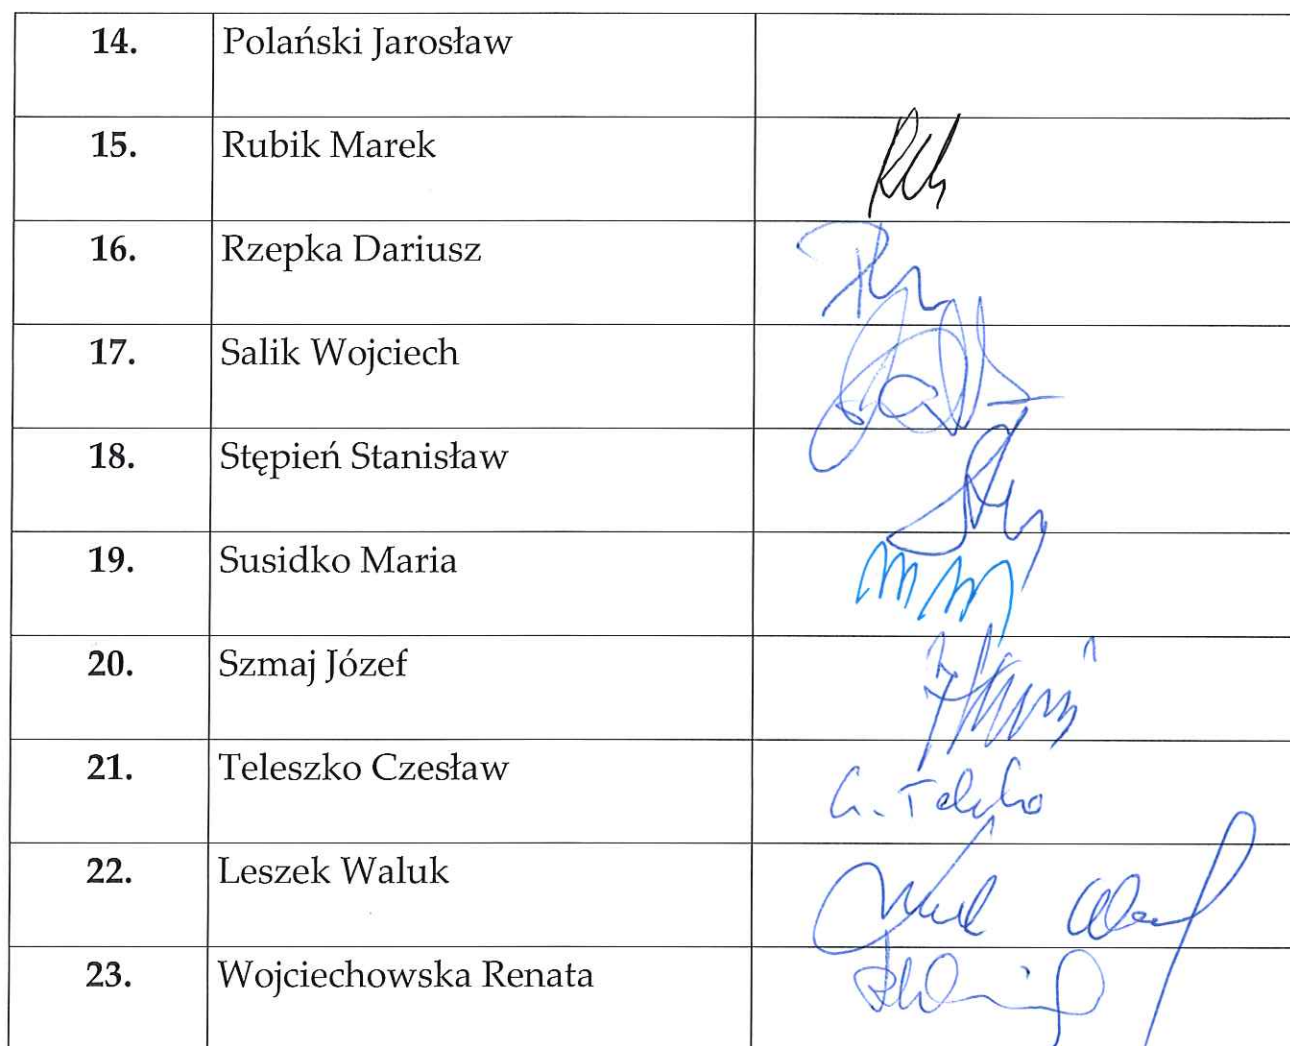 14. Polański Jarosław
15. Rubik Marek
16. Rzepka Dariusz
17. Salik Wojciech
18. Stępień Stanisław
19. Susidko Maria
20. Szmaj Józef
21. Teleszko Czesław
22. Leszek Waluk
23. Wojciechowska Renata